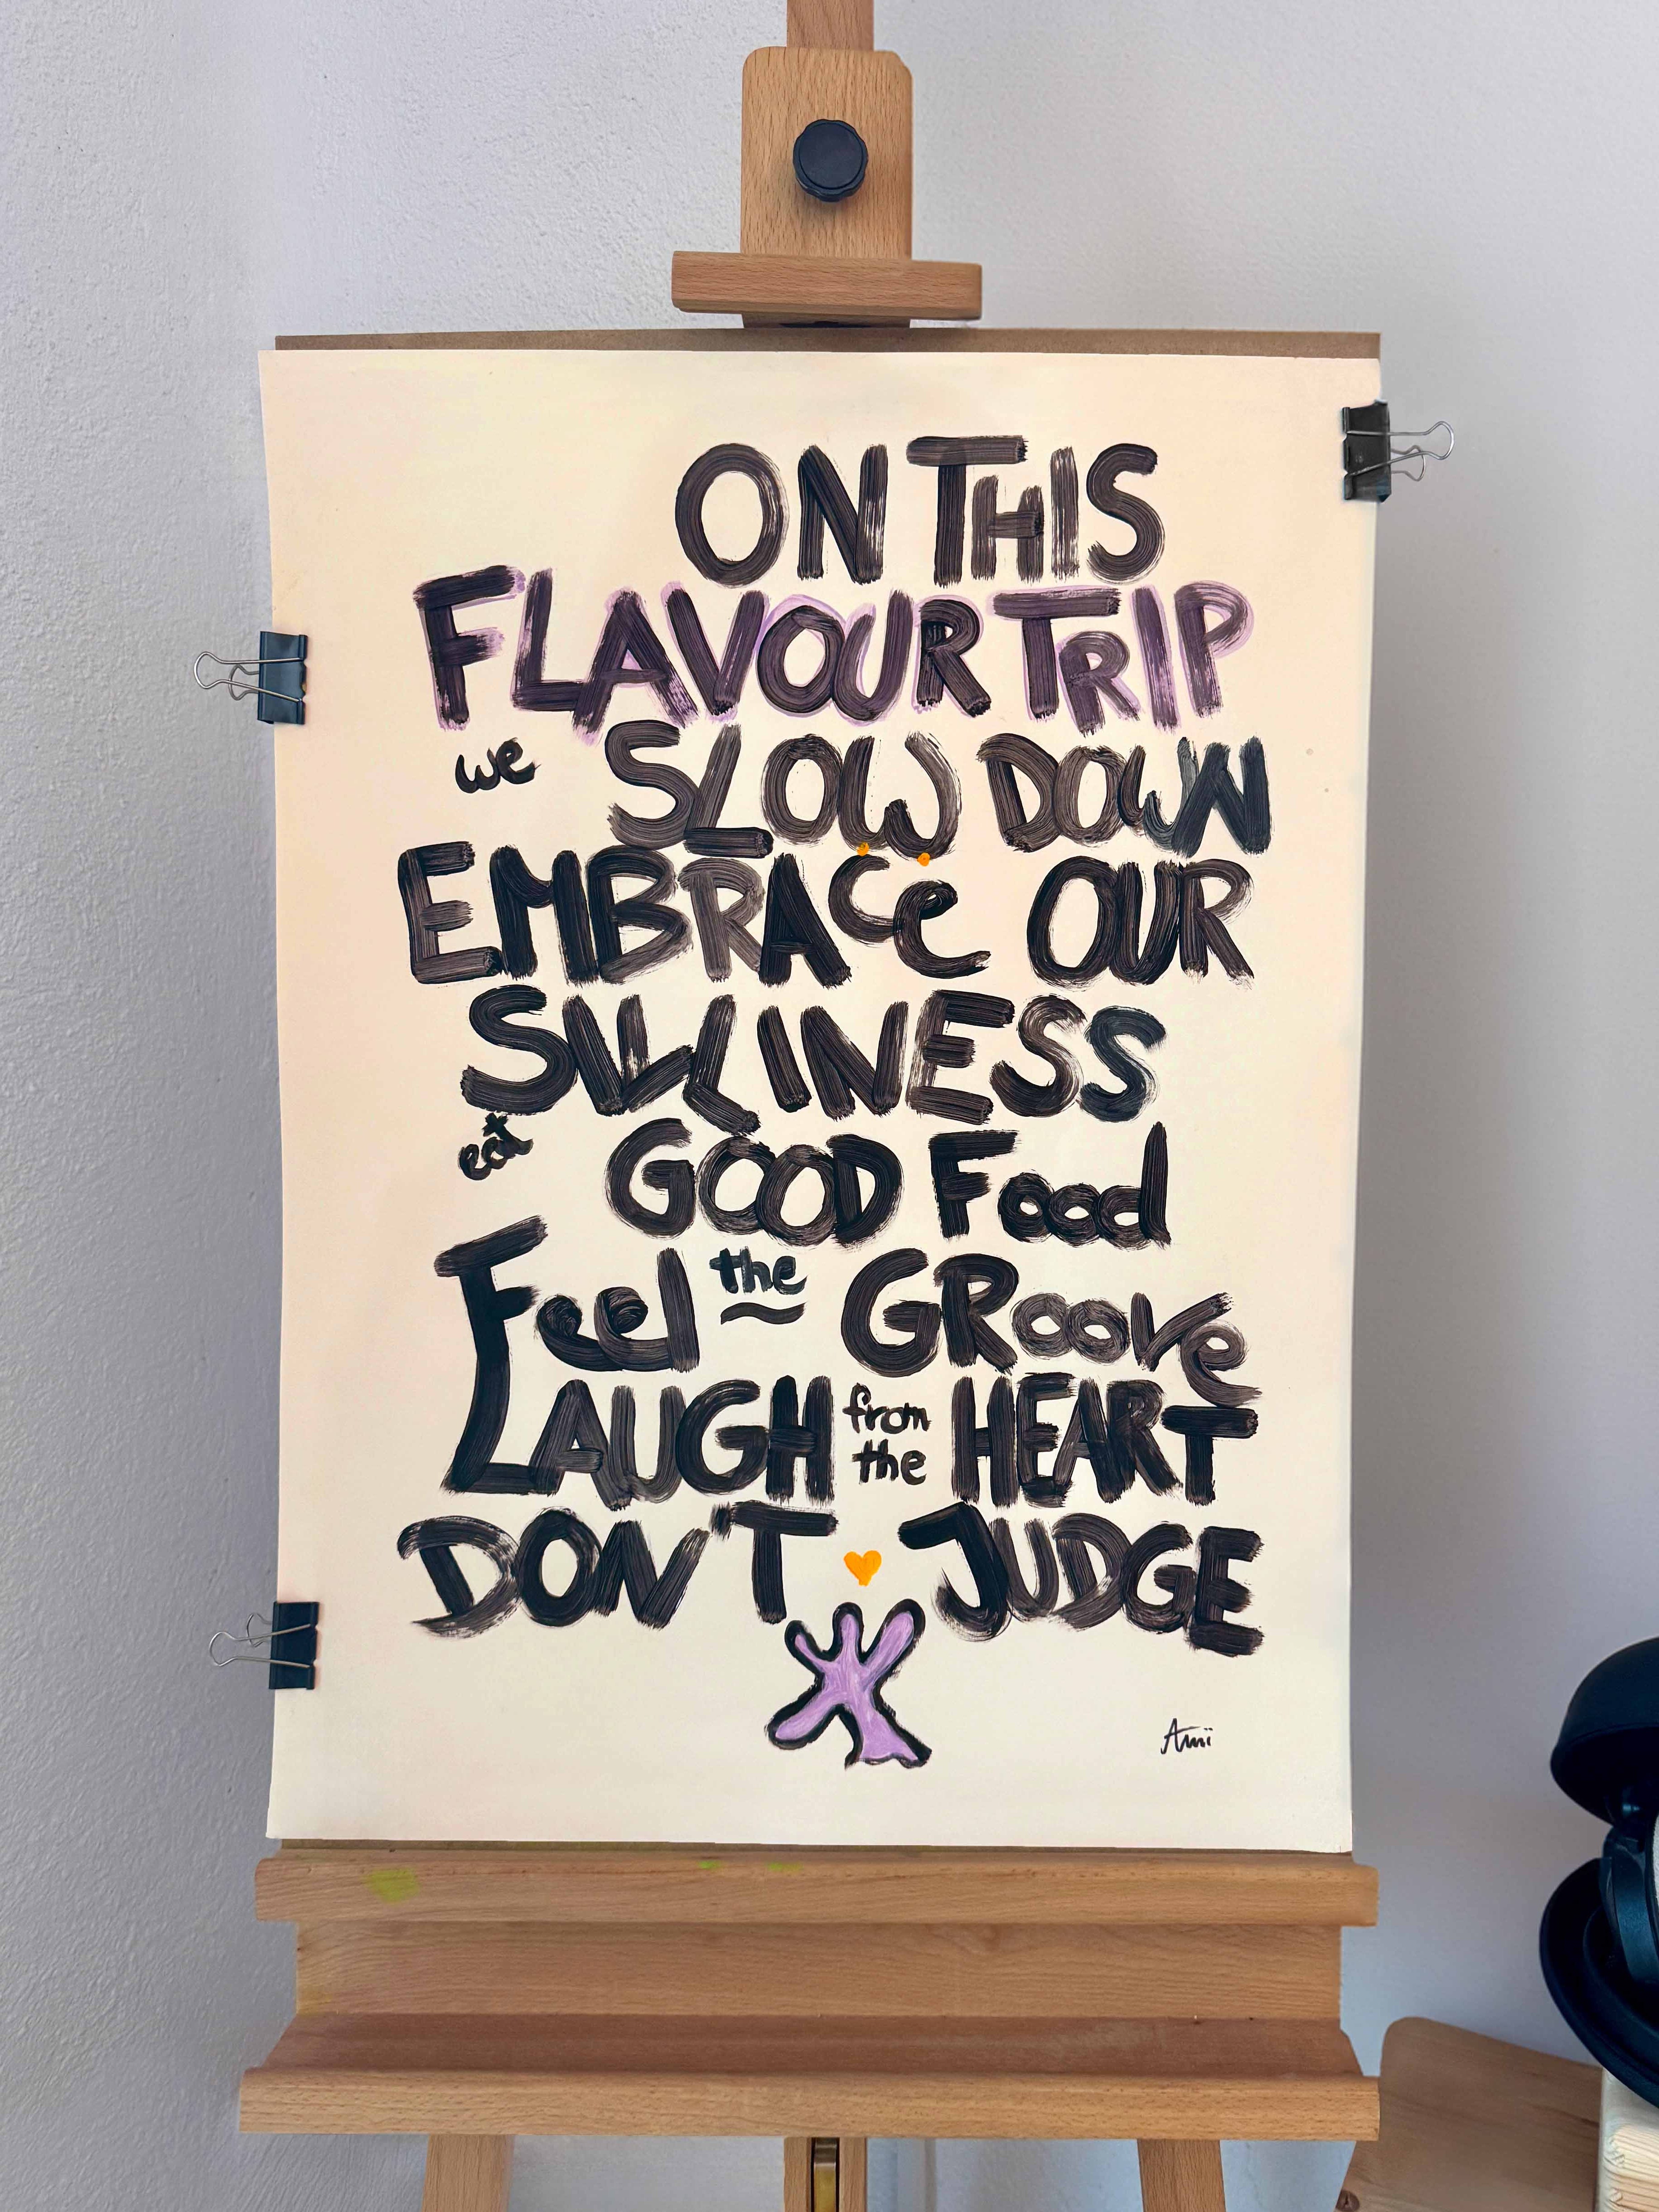 ON THIS
FLAVOUR TRIP
we SLOW DOWN
EMBRACe OUR
SILLINESS
eat GOOD Food
Feel the GRoove
LAUGH from the HEART
DON'T JUDGE
Amï